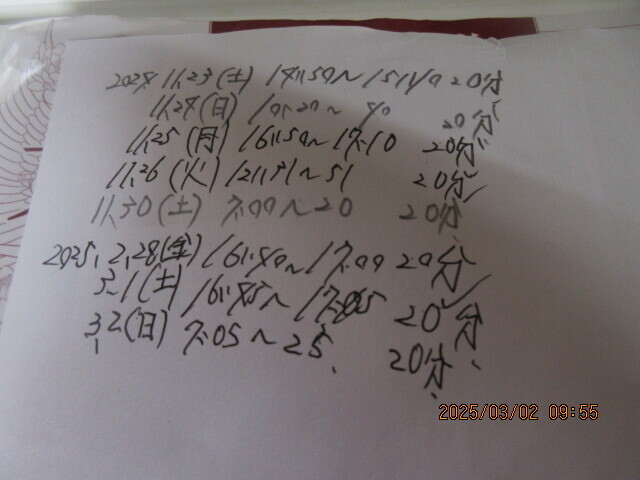 2024, 11,23(土) 14:50～15:10 20分
11,24(日) 10:20～40 20分
11,25(月) 16:50～17:10 20分
11,26(火) 12:31～51 20分
11,30(土) 7:00～20 20分
2025, 2,28(金) 16:40～17:00 20分
3,1(土) 16:45～17:05 20分
3,2(日) 7:05～25 20分
2025/03/02 09:55